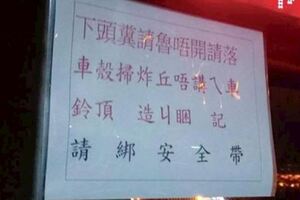 下頭糞請魯唔開請落
車殼掃炸丘唔講乀車
鈴頂 造丩睏 記
請 綁 安 全 帶